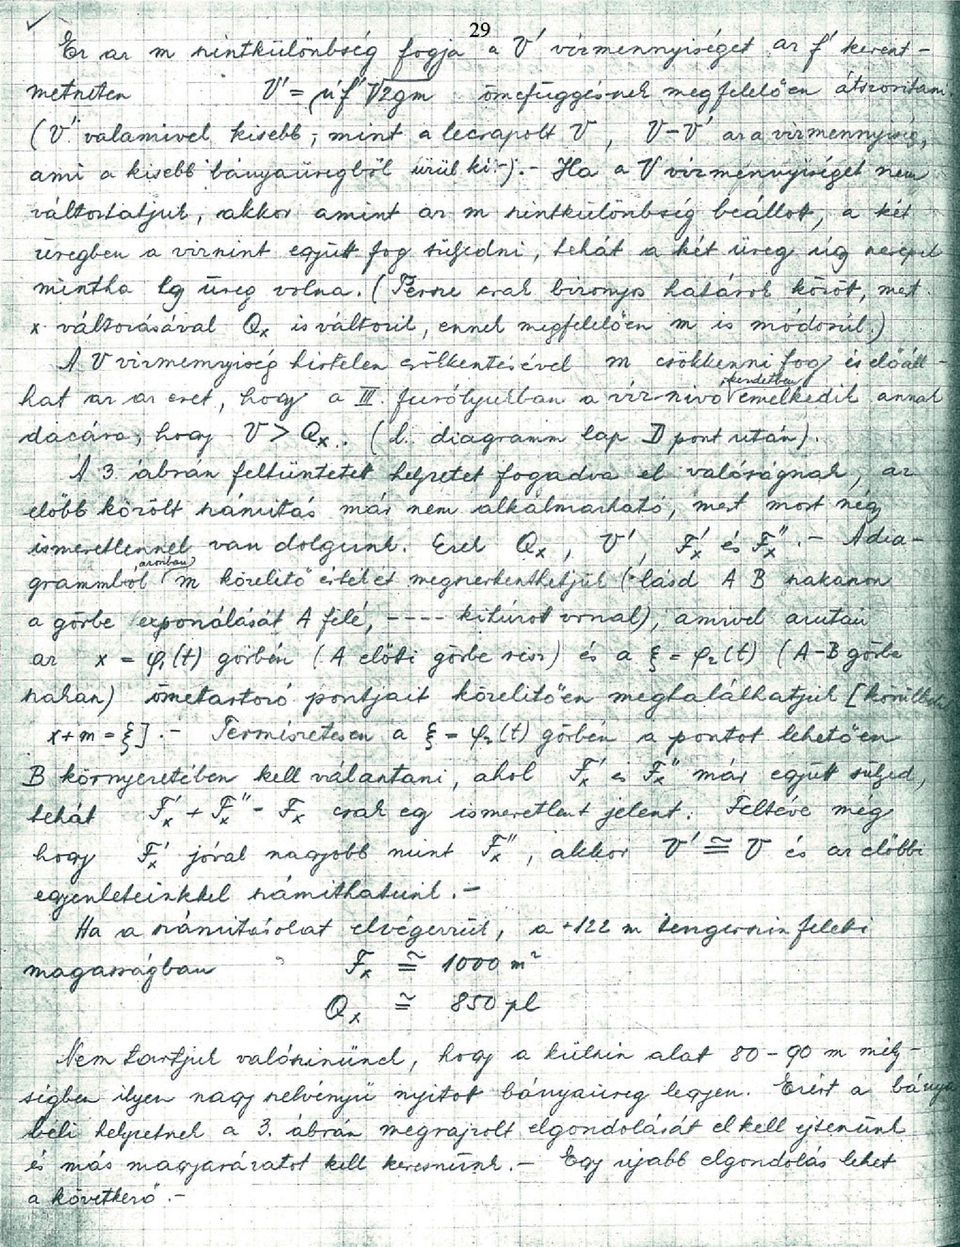 29
Ez az m szintkülönbség fogja a V' vízmennyiséget az f' kereszt-
metszeten V' = μf'√2gm összefüggésnek megfelelően átszorítani
(V' valamivel kisebb, mint a lecsapolt V, V-V' az a vízmennyiség,
ami a kisebb bányaüregből ürül ki.-).- Ha a V vízmennyiséget nem
változtatjuk, akkor amint az m szintkülönbség beállott, a két
üregben a vizszint együtt fog süllyedni, tehát a két üreg úgy szerepel
mintha egy üreg volna. (Persze csak bizonyos határok között, mert
x változásával Qx is változik, ennek megfelelően m is módosúl.)
A V vizmennyiség hirtelen csökkentésével m csökkenni fog és előáll-
hat az az eset, hogy a III. furólyukban a víz-nivó kezdetben emelkedik annak
dacára, hogy V > Qx. (l. diagramm lap D pont után).
A 3. ábrán feltüntetett helyzetet fogadva el valóságnak, az
előbb közölt számítás már nem alkalmazható, mert most négy
ismeretlennel van dolgunk. Ezek Qx, V', F'x és F''x.- A dia-
grammból azonban m közelítő értékét megszerkeszthetjük (lásd A B szakaszon
a görbe exponálását A felé, ---- kihúzott vonal), amivel azután
az x = φ₁(t) görbén (A előtti görbe rész) és a ξ = φ₂(t) (A-B görbe
szakasz) összetartozó pontjait közelítően megtalálhatjuk [körülbelül
x+m = ξ].- Természetesen a ξ = φ₂(t) görbén a pontot lehetően
B környezetében kell választani, ahol F'x és F''x már együtt süllyed,
tehát F'x + F''x = Fx csak egy ismeretlent jelent. Feltéve még
hogy F'x jóval nagyobb mint F''x, akkor V' ≅ V és az előbbi
egyenleteinkkel számíthatunk.-
Ha a számításokat elvégezzük, a +122 m tengerszin feletti
magasságban Fx ≅ 1000 m²
Qx ≅ 850 pl
Nem tartjuk valószinünek, hogy a külszin alatt 80-90 m mély-
ségben ilyen nagy szelvényü nyitott bányaüreg legyen. Ezért a bánya
beli helyzetnek a 3. ábrán megrajzolt elgondolását el kell ejtenünk
és más magyarázatot kell keresnünk.- Egy ujabb elgondolás lehet
a következő.-